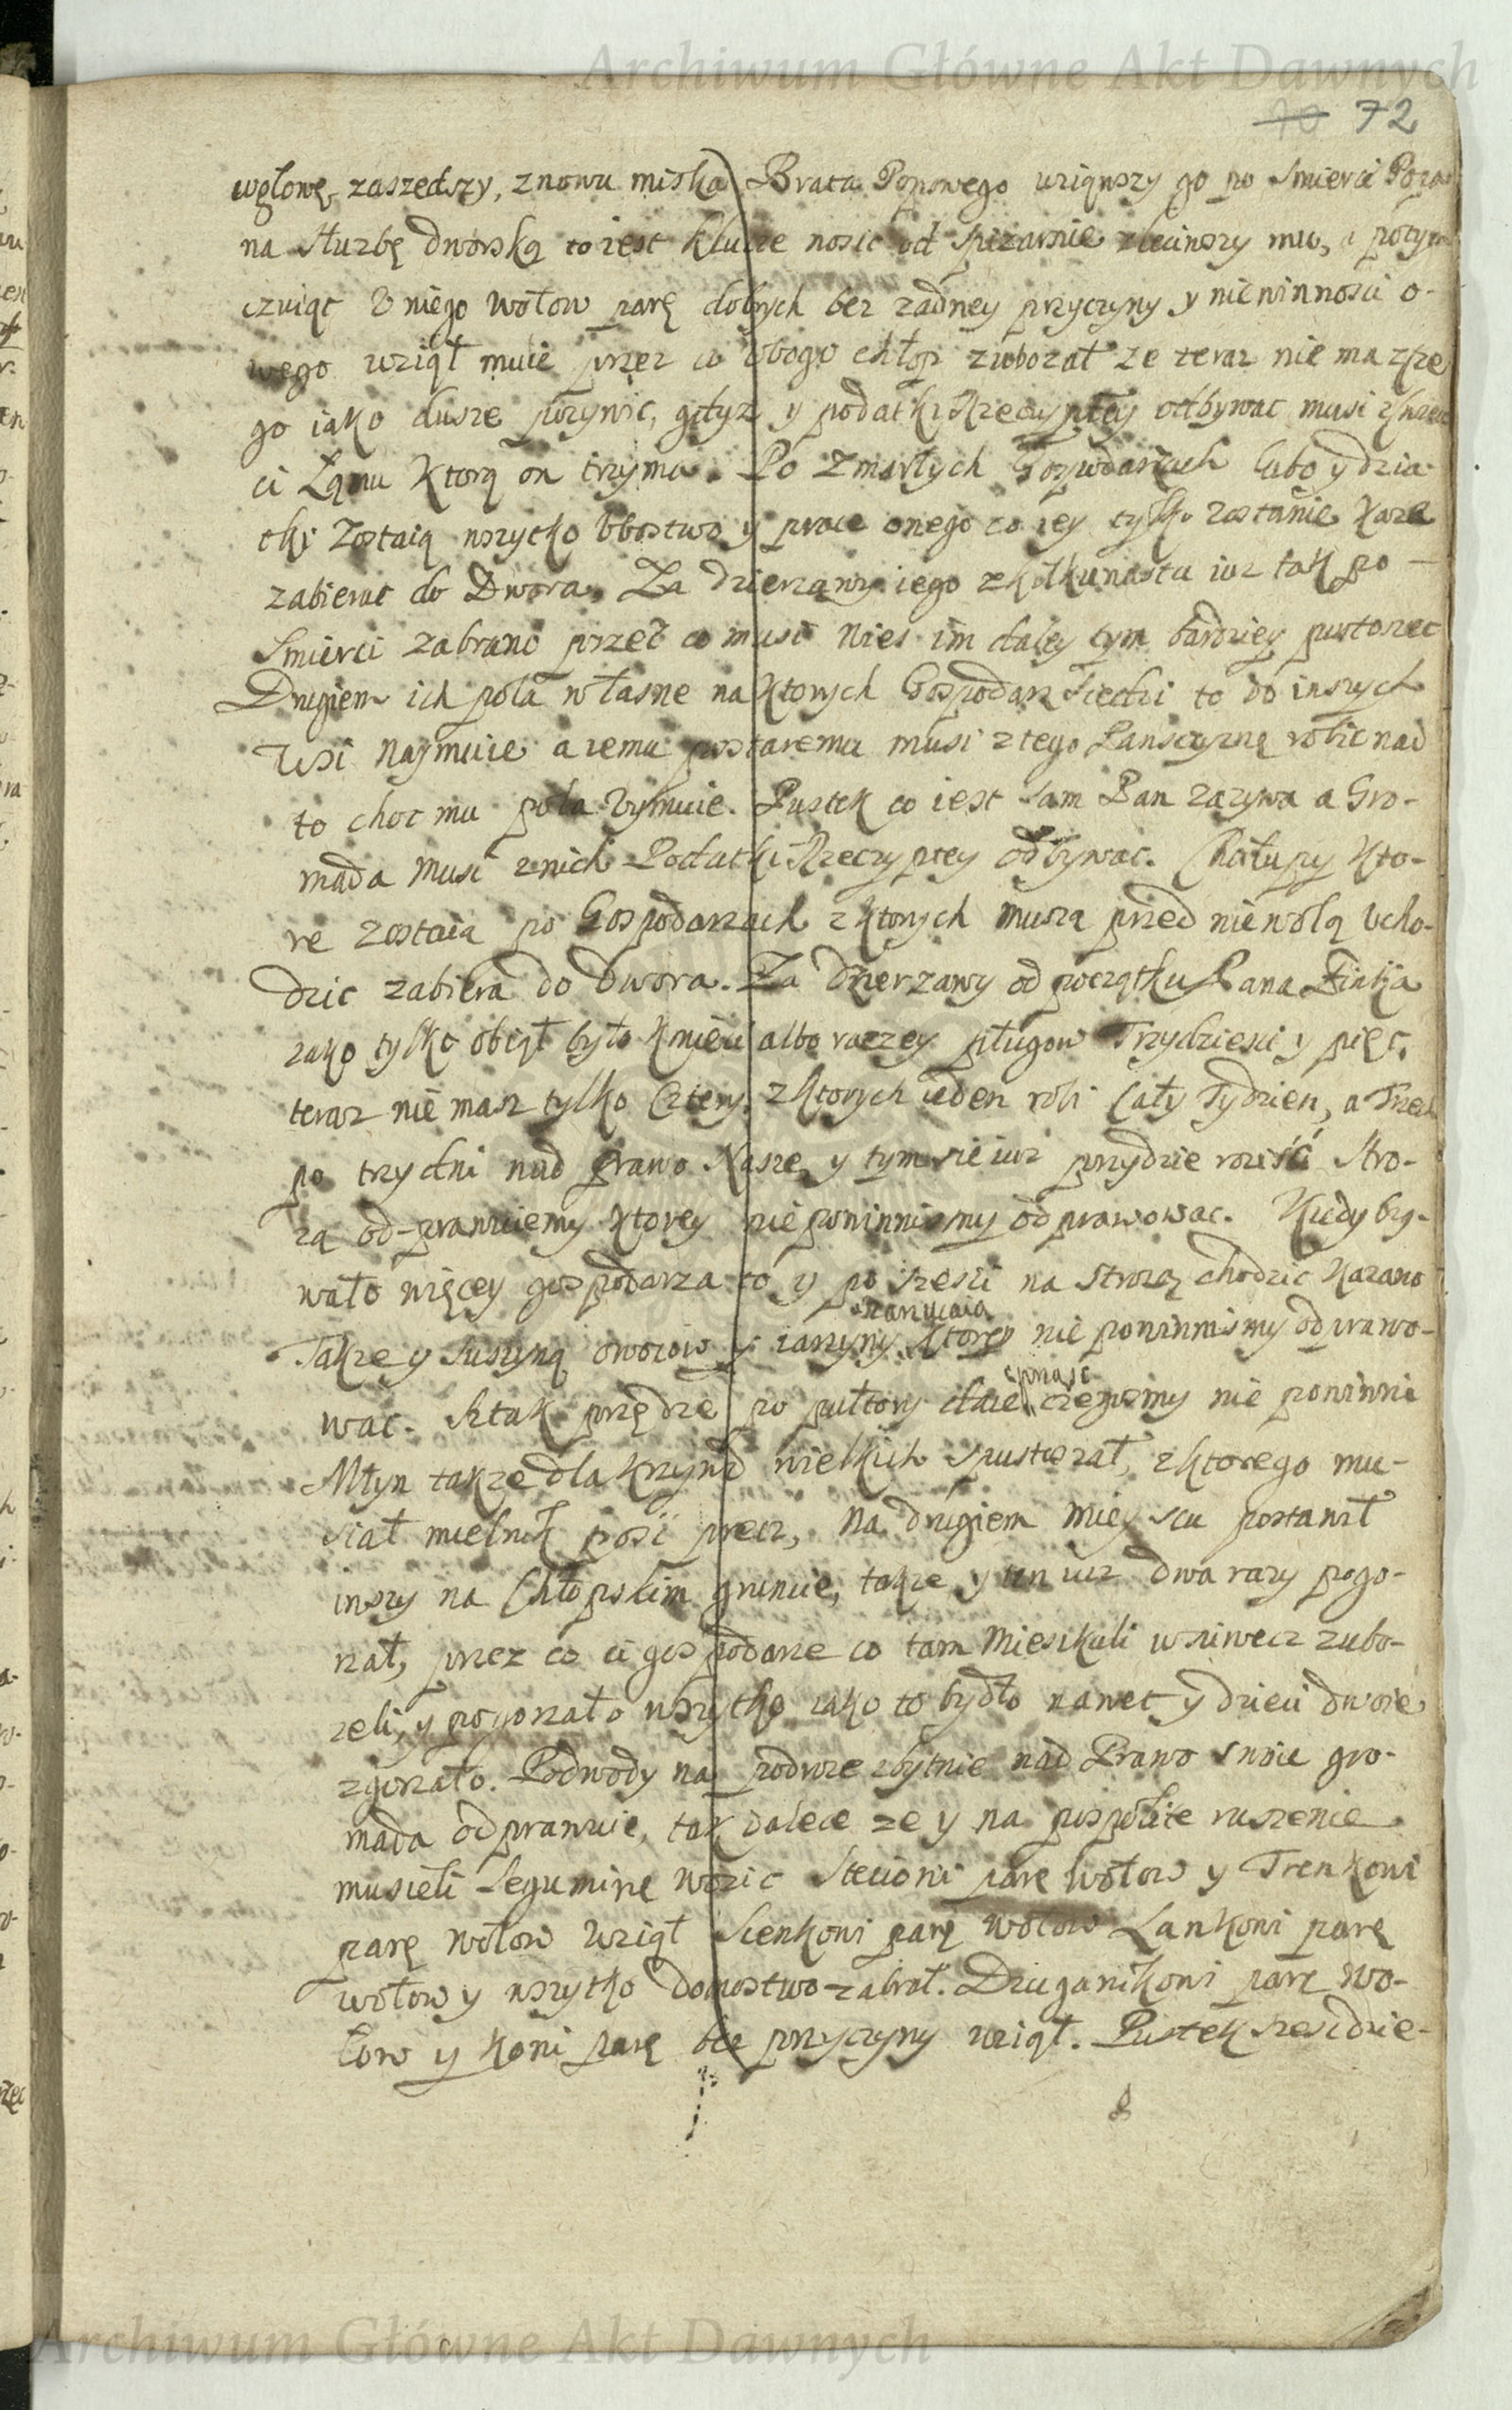 Archiwum Główne Akt Dawnych
70 72
wgłowę zaszedszy, znowu miska Brata Popowego wziąwszy go po Smierci Popa
na słuzbę dworską to iest klucze nosic od spizarnie zleciwszy mu, a potym
czuiąc v niego wołow parę dobrych bez zadney przyczyny y niewinnosci o-
wego wziął muie przez co vbogo chłop zubozał ze teraz nie ma zcze
go iako dusze pozywic, gdyz y podatki Rzeczyptey odbywac musi
ci Łanu ktorą on trzyma. Po Zmarłych Gospodarzach lubo y dzia
tki zostaią wszytko vbostwo y prace onego co iey tylko zostanie kaze
zabierac do Dwora, Za dzierzawy iego z kilkunastu iuz tak po
Smierci zabrano przez co musi Wies im daley tym bardziey pustoszec
Drugiem ich pola własne na ktorych Gospodarz siedzi to do inszych
Wsi naymuie a iemu postaremu musi z tego Panszczyznę robic nad
to choc mu pola vymuie. Pustek co iest sam Pan zazywa a Gro-
mada musi z nich Podatki Rzeczyptey odbywac. Chałupy kto-
re zostaia po Gospodarzach z ktorych musza przed niewolą vcho-
dzic zabiera do Dwora. Za dzierzawy od początku Pana Ziatka
iako tylko obiął było kmieci albo raczey pługow Trzydziesci y pięc,
teraz nie masz tylko Cztery, z ktorych ieden robi Cały Tydzien, a Trzech
po trzy dni nad prawo Nasze, y tym sie iuz przydzie roziść Stro-
zą od-prawuiemy ktorey nie powinnismy odprawowac. Kiedy by-
wało więcey gospodarza to y po szesci na strozą chodzic kazano
narzucaia
Takze y suszyną owocow y iarzyny, ktorey nie powinnismy odprawo-
sprząsc
wac. sztuk przędze po pułtory daie czegosmy nie powinni
Młyn takze dla krzywd wielkich spustoszał, z ktorego mu-
siał mielnik posć precz, na drugiem mieyscu postawił
inszy na Chłopskim gruncie, takze y ten iuz dwa razy pogo-
rzał, przez co ci gospodarze co tam mieszkali wniwecz zubo-
zeli, y pogorzało wszytko iako to bydło nawet y dzieci dwoie
zgorzało. Podwody na podwoze zbytnie nad Prawo swoie gro-
mada odprawuie, tak dalece ze y na pospolite ruszenie
musieli Legumine wozic Steciowi parę wołow y Trenkowi
parę wołow wziął Sienkowi parę wołow Lankowi parę
wołow y wszytko domostwo zabrał. Dziuganikowi parę wo-
łow y koni parę bez przyczyny wziął. Pustek szescdzie-
Archiwum Główne Akt Dawnych